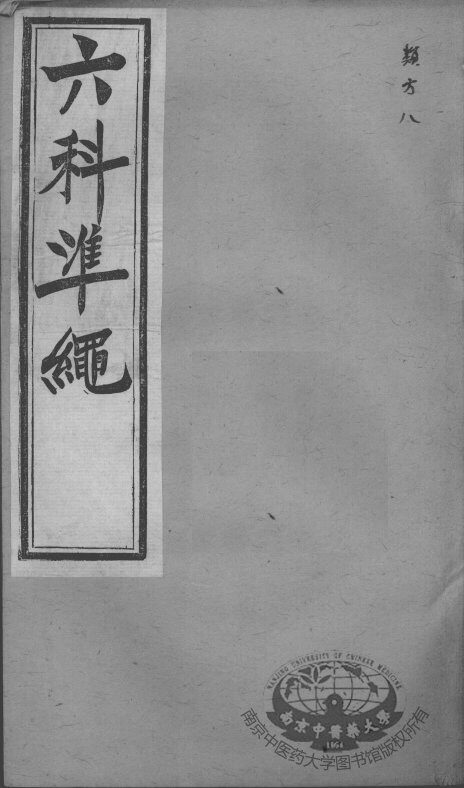 類方八
六科準繩
NANJING UNIVERSITY OF CHINESE MEDICINE
南京中醫藥大學
1954
南京中医药大学图书馆版权所有